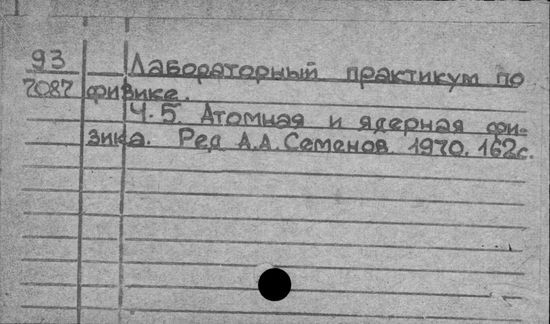 93 Лабораторный практикум по
7087 физике.
Ч. 5. Атомная и ядерная фи-
зика. Ред А.А. Семенов. 1970. 162с.